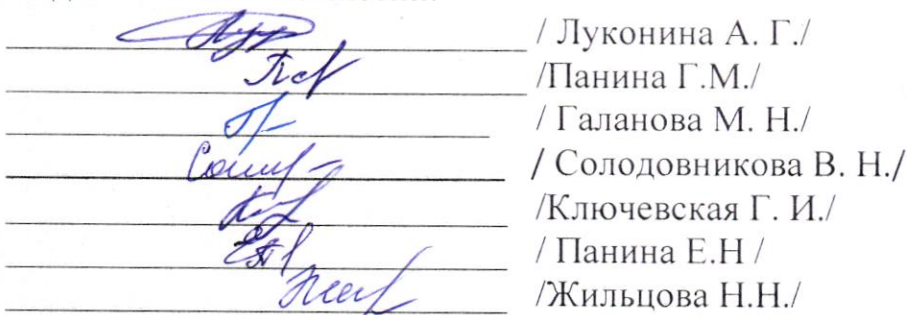 / Луконина А. Г./
/Панина Г.М./
/ Галанова М. Н./
/ Солодовникова В. Н./
/Ключевская Г. И./
/ Панина Е.Н /
/Жильцова Н.Н./